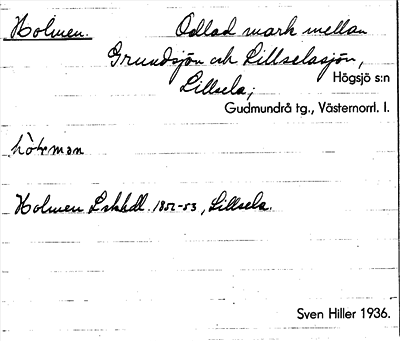 Holmen. Odlad mark mellan
Grundsjön och Lillselasjön,
Lillsela; Högsjö s:n
Gudmundrå tg., Västernorrl. l.
Holmen Lskhdl. 1852-53, Lillsela.
Sven Hiller 1936.